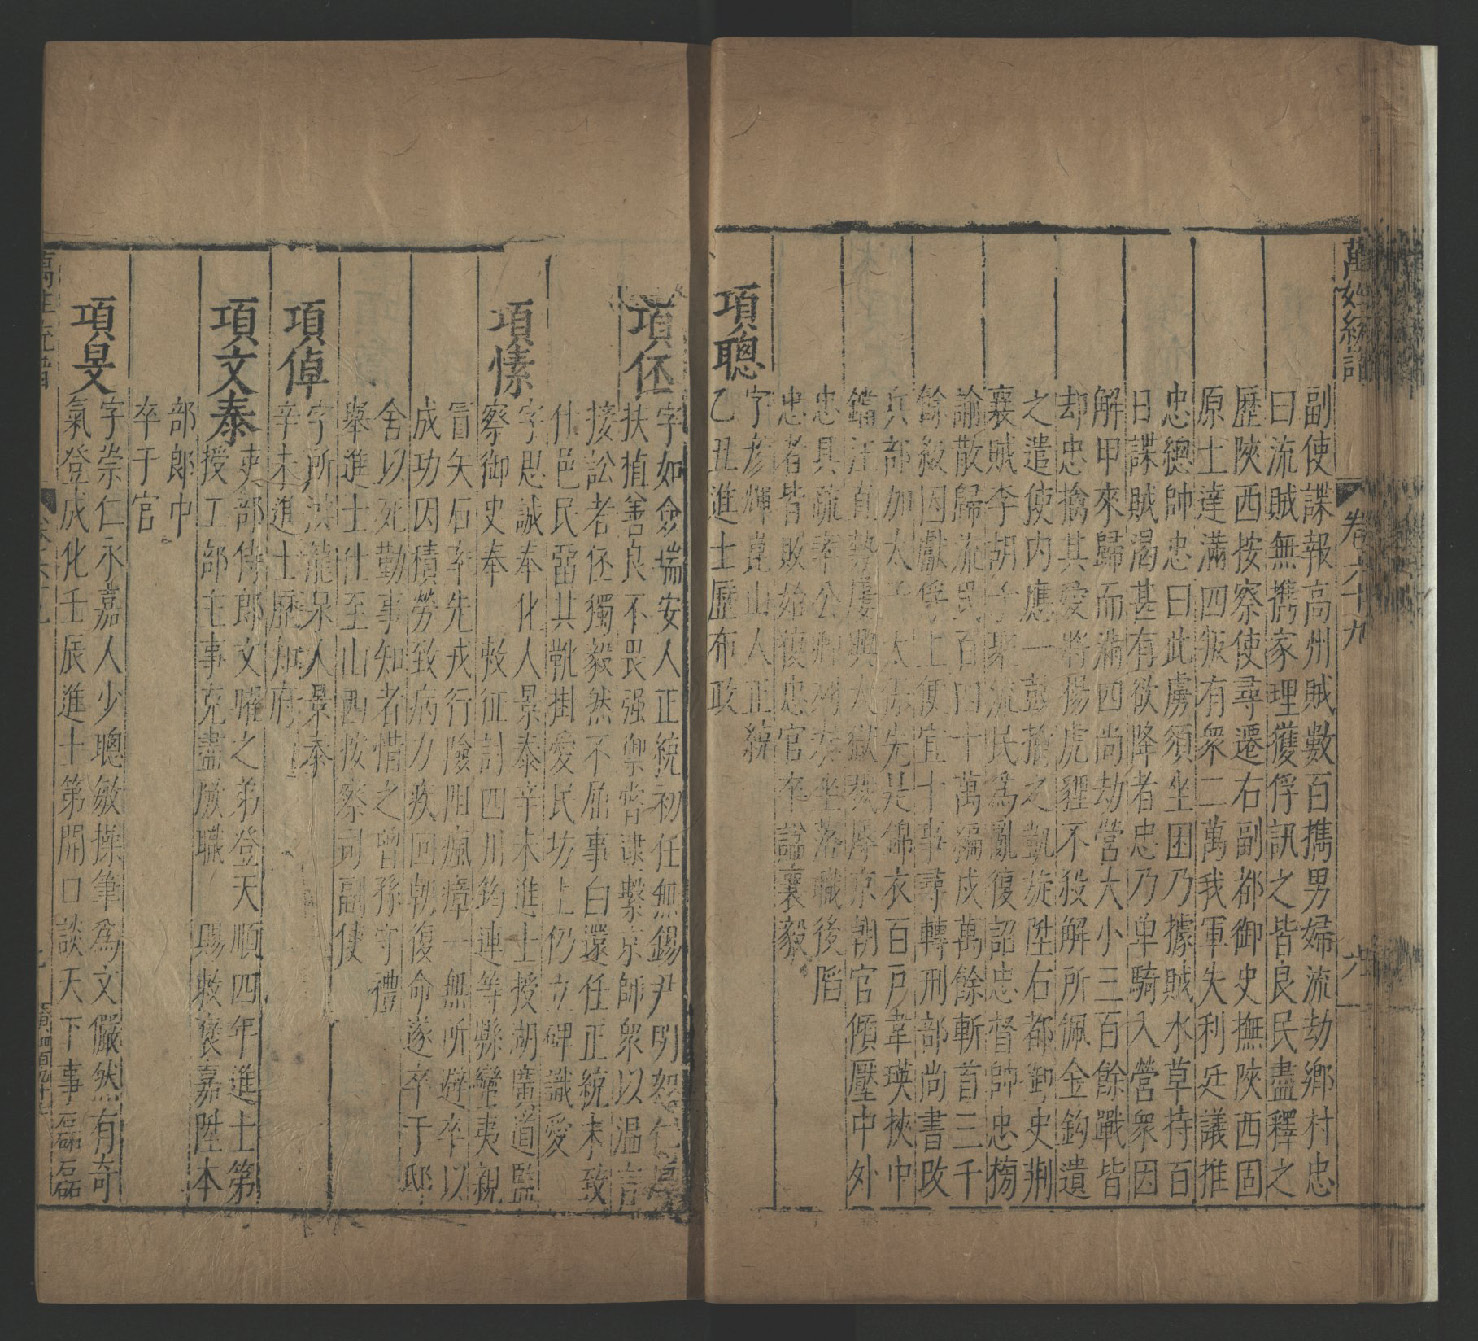 萬姓統譜
卷六十九
六
副使諜報高州賊數百攜男婦流劫鄉村忠
曰流賊無攜家理獲俘訊之皆良民盡釋之
歷陝西按察使尋遷右副都御史撫陝西固
原土達滿四叛有眾二萬我軍失利廷議推
忠總帥忠曰此虜須坐困乃據賊水草持百
日諜賊渴甚有欲降者忠乃单騎入營眾因
解甲來歸而滿四尚劫營大小三百餘戰皆
却忠擒其愛將楊虎貍不殺解所佩金鈎遺
之遣使内應一彭擒之凱旋陞右都御史荆
襄賊李胡子聚流民為亂復詔忠督帥忠榜
諭散歸流民百四十萬編戍萬餘斬首三千
餘級因獻俘上便宜十事尋轉刑部尚書改
兵部加太子太保先是錦衣百戶韋瑛挾中
鐺汪直勢屢興大獄毀辱京朝官傾壓中外
忠具疏率公卿
職後陷
忠者皆敗始復忠官卒諡襄毅
項聰
字彥輝崑山人正統
乙丑進士歷布政
項伾
字如會瑞安人正統初任無錫尹明恕仁厚
扶植善良不畏强禦嘗逮繫京師眾以溫言
接訟者伾獨毅然不屈事白還任正統末致
仕邑民
其靴掛愛民坊上仍立碑識愛
項愫
字思誠奉化人景泰辛未進士授湖廣道監
察御史奉
敕征討四川筠連等縣蠻夷親
冒矢石率先戎行險阻瘋瘴一無所避卒以
成功因積勞致病力疾回朝復命遂卒于邸
舍以死勤事知者惜之曾孫守禮
舉進士仕至山西按察司副使
項倬
字所
龍泉人景泰
辛未進士歷知府
項文泰
吏部侍郎文曜之弟登天順四年進士第
授工部主事克盡厥職
賜敕褒嘉陞本
部郎中
卒于官
項旻
字崇仁永嘉人少聰敏操筆為文儼然有奇
氣登成化壬辰進士第開口談天下事磊磊